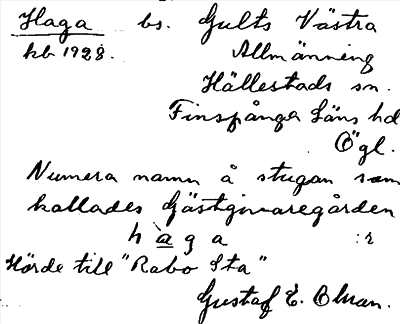 Haga bs. Gults Västra
kb 1928. Allmänning
Hällestads sn.
Finspånga Läns hd
Ögl.
Numera namn å stugan som
kallades Gästgivaregården
hàga :r
Hörde till "Rabo Sta"
Gustaf E. Olman.